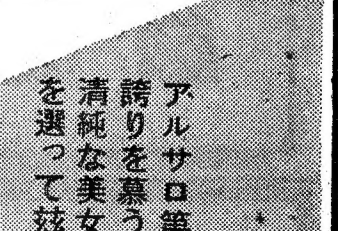 アルサロ第
誇りを慕う
清純な美女
を選って玆